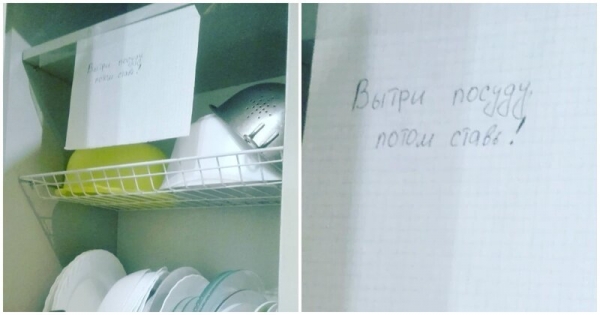 Вытри посуду,
потом ставь!
Вытри посуду,
потом ставь!